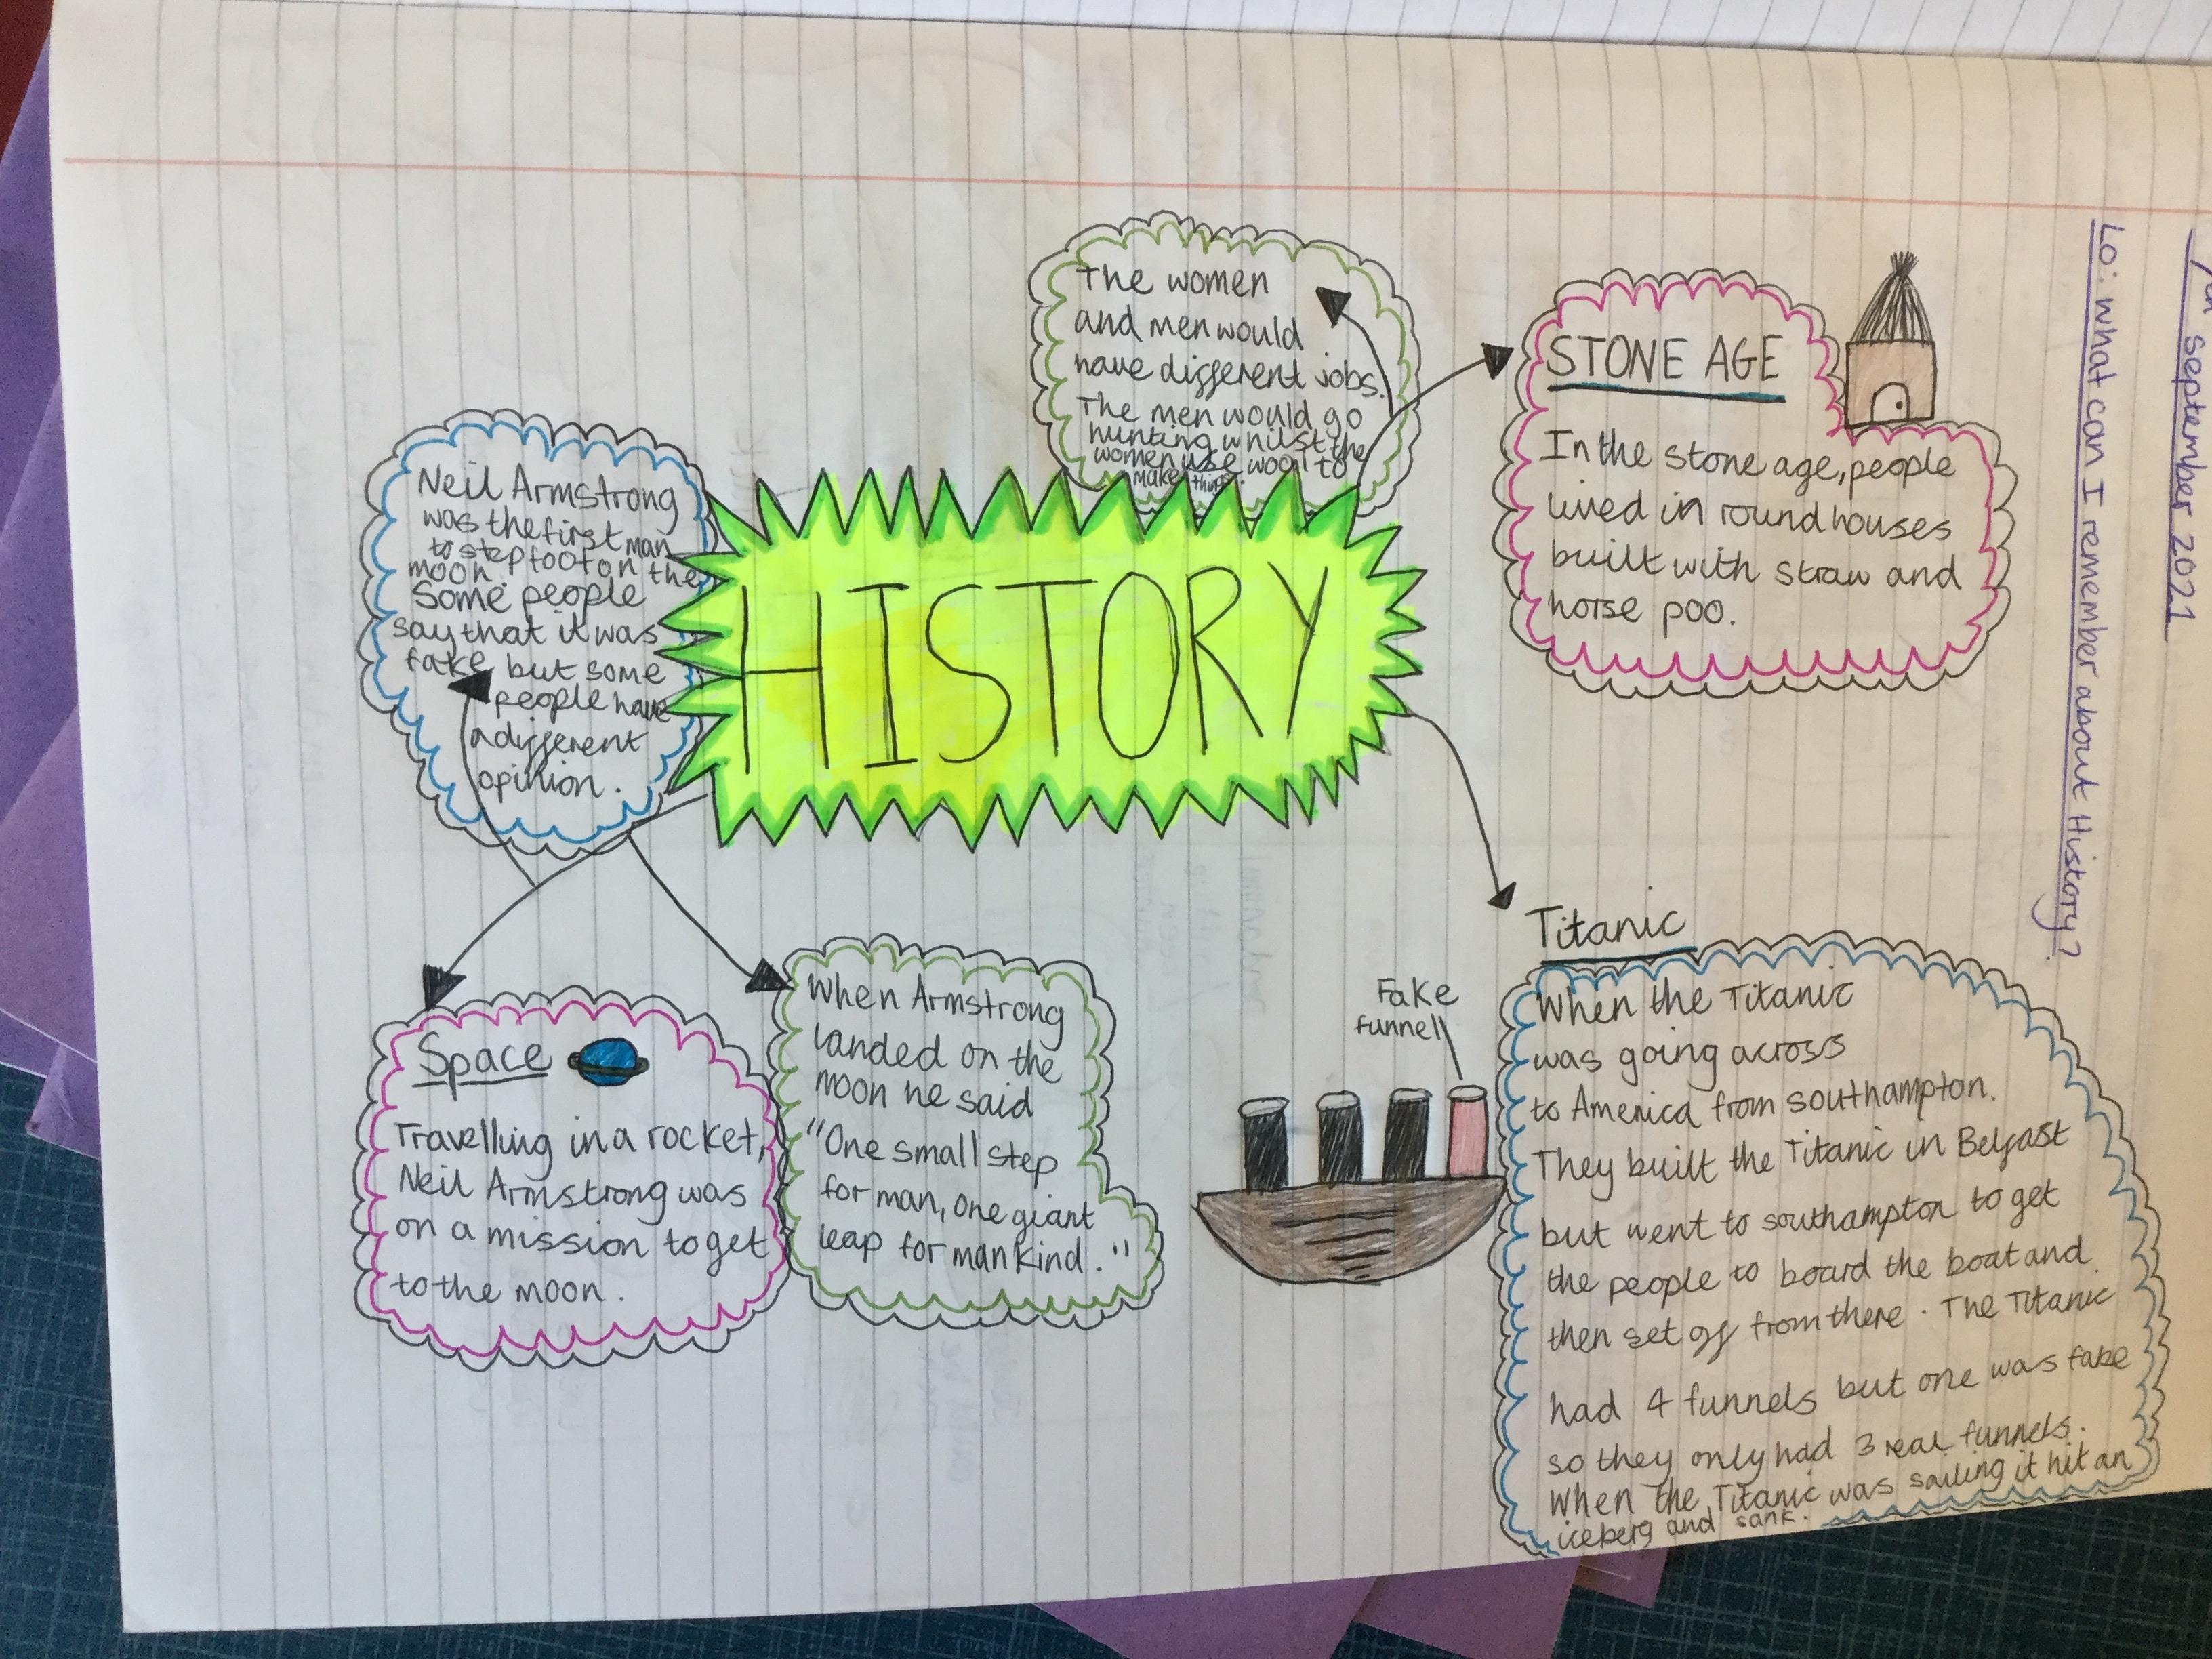 September 2021
Lo: what can I remember about History?
HISTORY
The women
and men would
have different jobs.
The men would go
hunting whilst the
women use wool to
make things.
STONE AGE
In the stone age, people
lived in round houses
built with straw and
horse poo.
Neil Armstrong
was the first man
to step foot on the
moon.
Some people
say that it was
fake but some
people have
a different
opinion.
Space
Travelling in a rocket,
Neil Armstrong was
on a mission to get
to the moon.
When Armstrong
landed on the
moon he said
"One small step
for man, one giant
leap for mankind."
Fake
funnell
Titanic
When the Titanic
was going across
to America from southampton.
They built the Titanic in Belfast
but went to southampton to get
the people to board the boat and
then set off from there. The Titanic
had 4 funnels but one was fake
so they only had 3 real funnels.
When the Titanic was sailing it hit an
iceberg and sank.